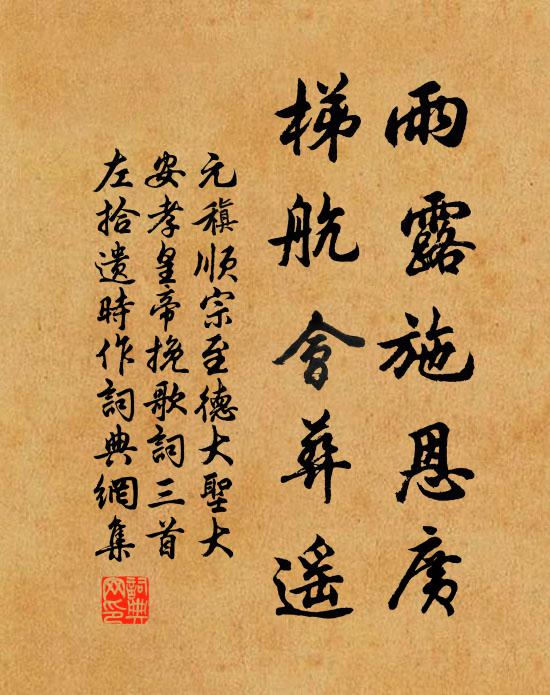 雨露施恩廣
梯航會葬遥
元稹順宗至德大聖大
安孝皇帝挽歌詞三首
左拾遺時作詞典網集
詞典
网印